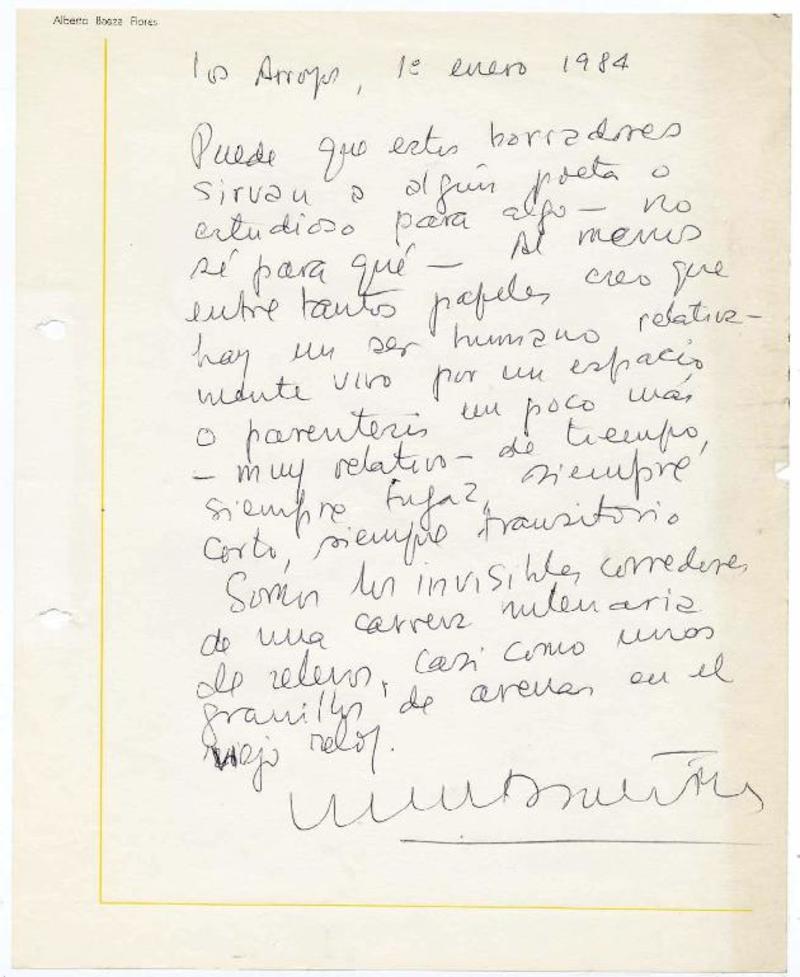 Alberto Baeza Flores
Los Arroyos, 1º enero 1984
Puede que estos borradores
sirvan a algún poeta o
estudioso para algo — no
sé para qué — Al menos
entre tantos papeles creo que
hay un ser humano relativa-
mente vivo por un espacio
o parentesis un poco más
— muy relativo — de tiempo,
siempre fugaz, siempre
corto, siempre transitorio
Somos los invisibles corredores
de una carrera milenaria
de relevos, casi como unos
granillos de arenas en el
viejo reloj.